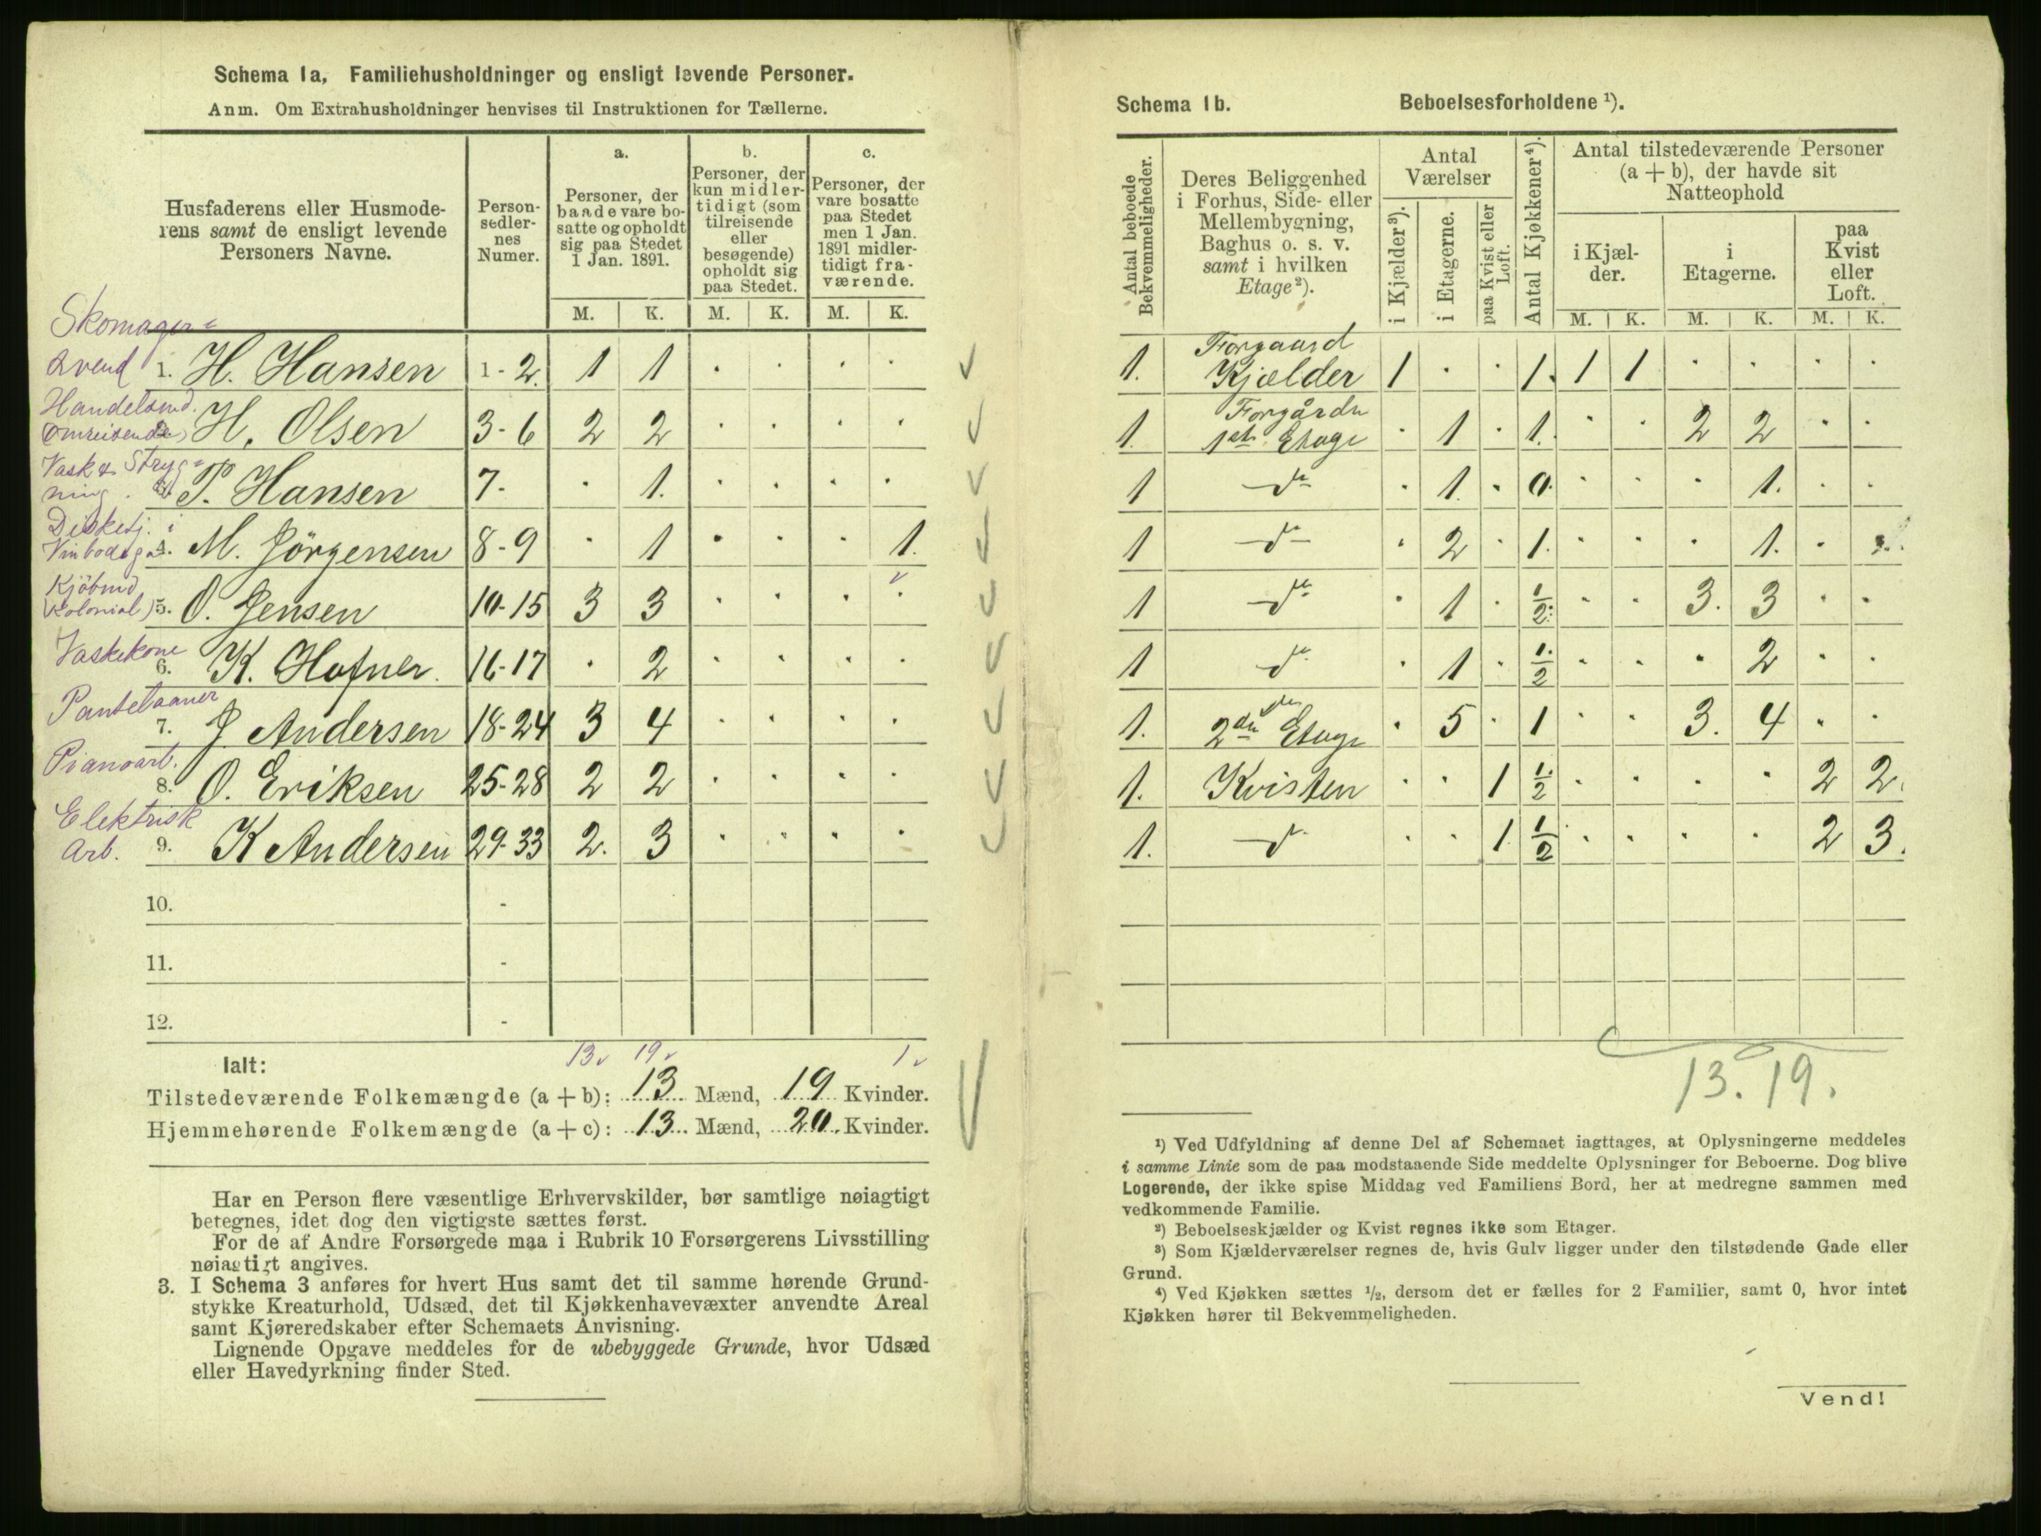 Schema 1a, Familiehusholdninger og ensligt levende Personer.
Anm. Om Extrahusholdninger henvises til Instruktionen for Tællerne.
Husfaderens eller Husmode-
rens samt de ensligt levende
Personers Navne.
Person-
sedler-
nes
Numer.
a.
Personer, der
baade vare bo-
satte og opholdt
sig paa Stedet
1 Jan. 1891.
b.
Personer, der
kun midler-
tidigt (som
tilreisende
eller
besøgende)
opholdt sig
paa Stedet.
c.
Personer, der
vare bosatte
paa Stedet
men 1 Jan.
1891 midler-
tidigt fra-
værende.
M. K. M. K. M. K.
Skomager=
svend 1. H. Hansen 1-2. 1 1 . . . .
Handelsmd.
(omreisende) H. Olsen 3-6 2 2 . . . .
Vask & Stryg=
ning. P. Hansen 7- . 1. . . . .
Disketj. i
Vinbodega 4. M. Jörgensen 8-9 . 1 . . . 1.
Kjöbmd
(Kolonial) 5. O. Jensen 10-15 3 3 . . . .
Vaskekone
6. K. Hofner. 16-17 . 2 . . . .
Pantelaaner
7. J Andersen 18-24 3 4 . . . .
Pianoarb.
8. O. Eriksen 25-28 2 2 . . . .
Elektrisk
Arb. 9. K Andersen 29-33 2. 3 . . . .
10. -
11. -
12. -
Ialt: 13 19 1
Tilstedeværende Folkemængde (a + b): 13 Mænd, 19 Kvinder.
Hjemmehørende Folkemængde (a + c): 13 Mænd, 20 Kvinder.
Har en Person flere væsentlige Erhvervskilder, bør samtlige nøiagtigt
betegnes, idet dog den vigtigste sættes først.
For de af Andre Forsørgede maa i Rubrik 10 Forsørgerens Livsstilling
nøiagtigt angives.
3. I Schema 3 anføres for hvert Hus samt det til samme hørende Grund-
stykke Kreaturhold, Udsæd, det til Kjøkkenhavevæxter anvendte Areal
samt Kjøreredskaber efter Schemaets Anvisning.
Lignende Opgave meddeles for de ubebyggede Grunde, hvor Udsæd
eller Havedyrkning finder Sted.
Schema 1b. Beboelsesforholdene ¹).
Antal beboede
Bekvemmeligheder.
Deres Beliggenhed
i Forhus, Side- eller
Mellembygning,
Baghus o. s. v.
samt i hvilken
Etage²).
Antal
Værelser
i Kjælder³).
i Etagerne.
paa Kvist eller
Loft.
Antal Kjøkkener⁴).
Antal tilstedeværende Personer
(a + b), der havde sit
Natteophold
i Kjæl-
der.
i
Etagerne.
paa
Kvist
eller
Loft.
M. K. M. K. M. K.
Forgaard
1. Kjælder 1 . . 1. 1 1 . . . .
Forgården
1. 1ste Etage . 1 . 1. . . 2 2 . .
1 do . 1. . 0. . . . 1. . .
1 do . 2 . 1. . . . 1. .
1 do . 1 . 1/2. . . 3. 3 . .
1 do . 1 . 1/2 . . . 2 . .
1. 2den Etage . 5 . 1 . . 3. 4 . .
1. Kvisten . . 1 1/2 . . . . 2 2.
1. do . . 1. 1/2 . . . . 2 3.
13. 19.
¹) Ved Udfyldning af denne Del af Schemaet iagttages, at Oplysningerne meddeles
i samme Linie som de paa modstaaende Side meddelte Oplysninger for Beboerne. Dog blive
Logerende, der ikke spise Middag ved Familiens Bord, her at medregne sammen med
vedkommende Familie.
²) Beboelseskjælder og Kvist regnes ikke som Etager.
³) Som Kjælderværelser regnes de, hvis Gulv ligger under den tilstødende Gade eller
Grund.
⁴) Ved Kjøkken sættes ½, dersom det er fælles for 2 Familier, samt 0, hvor intet
Kjøkken hører til Bekvemmeligheden.
Vend!